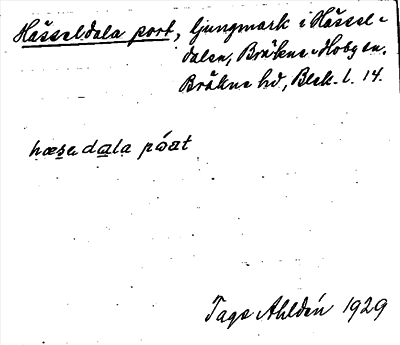 Hässeldala port, ljungmark i Hässel-
dalen, Bräkne-Hoby sn.
Bräkne hd, Blek. l. 14.
hæsədala póat
Tage Ahldén 1929